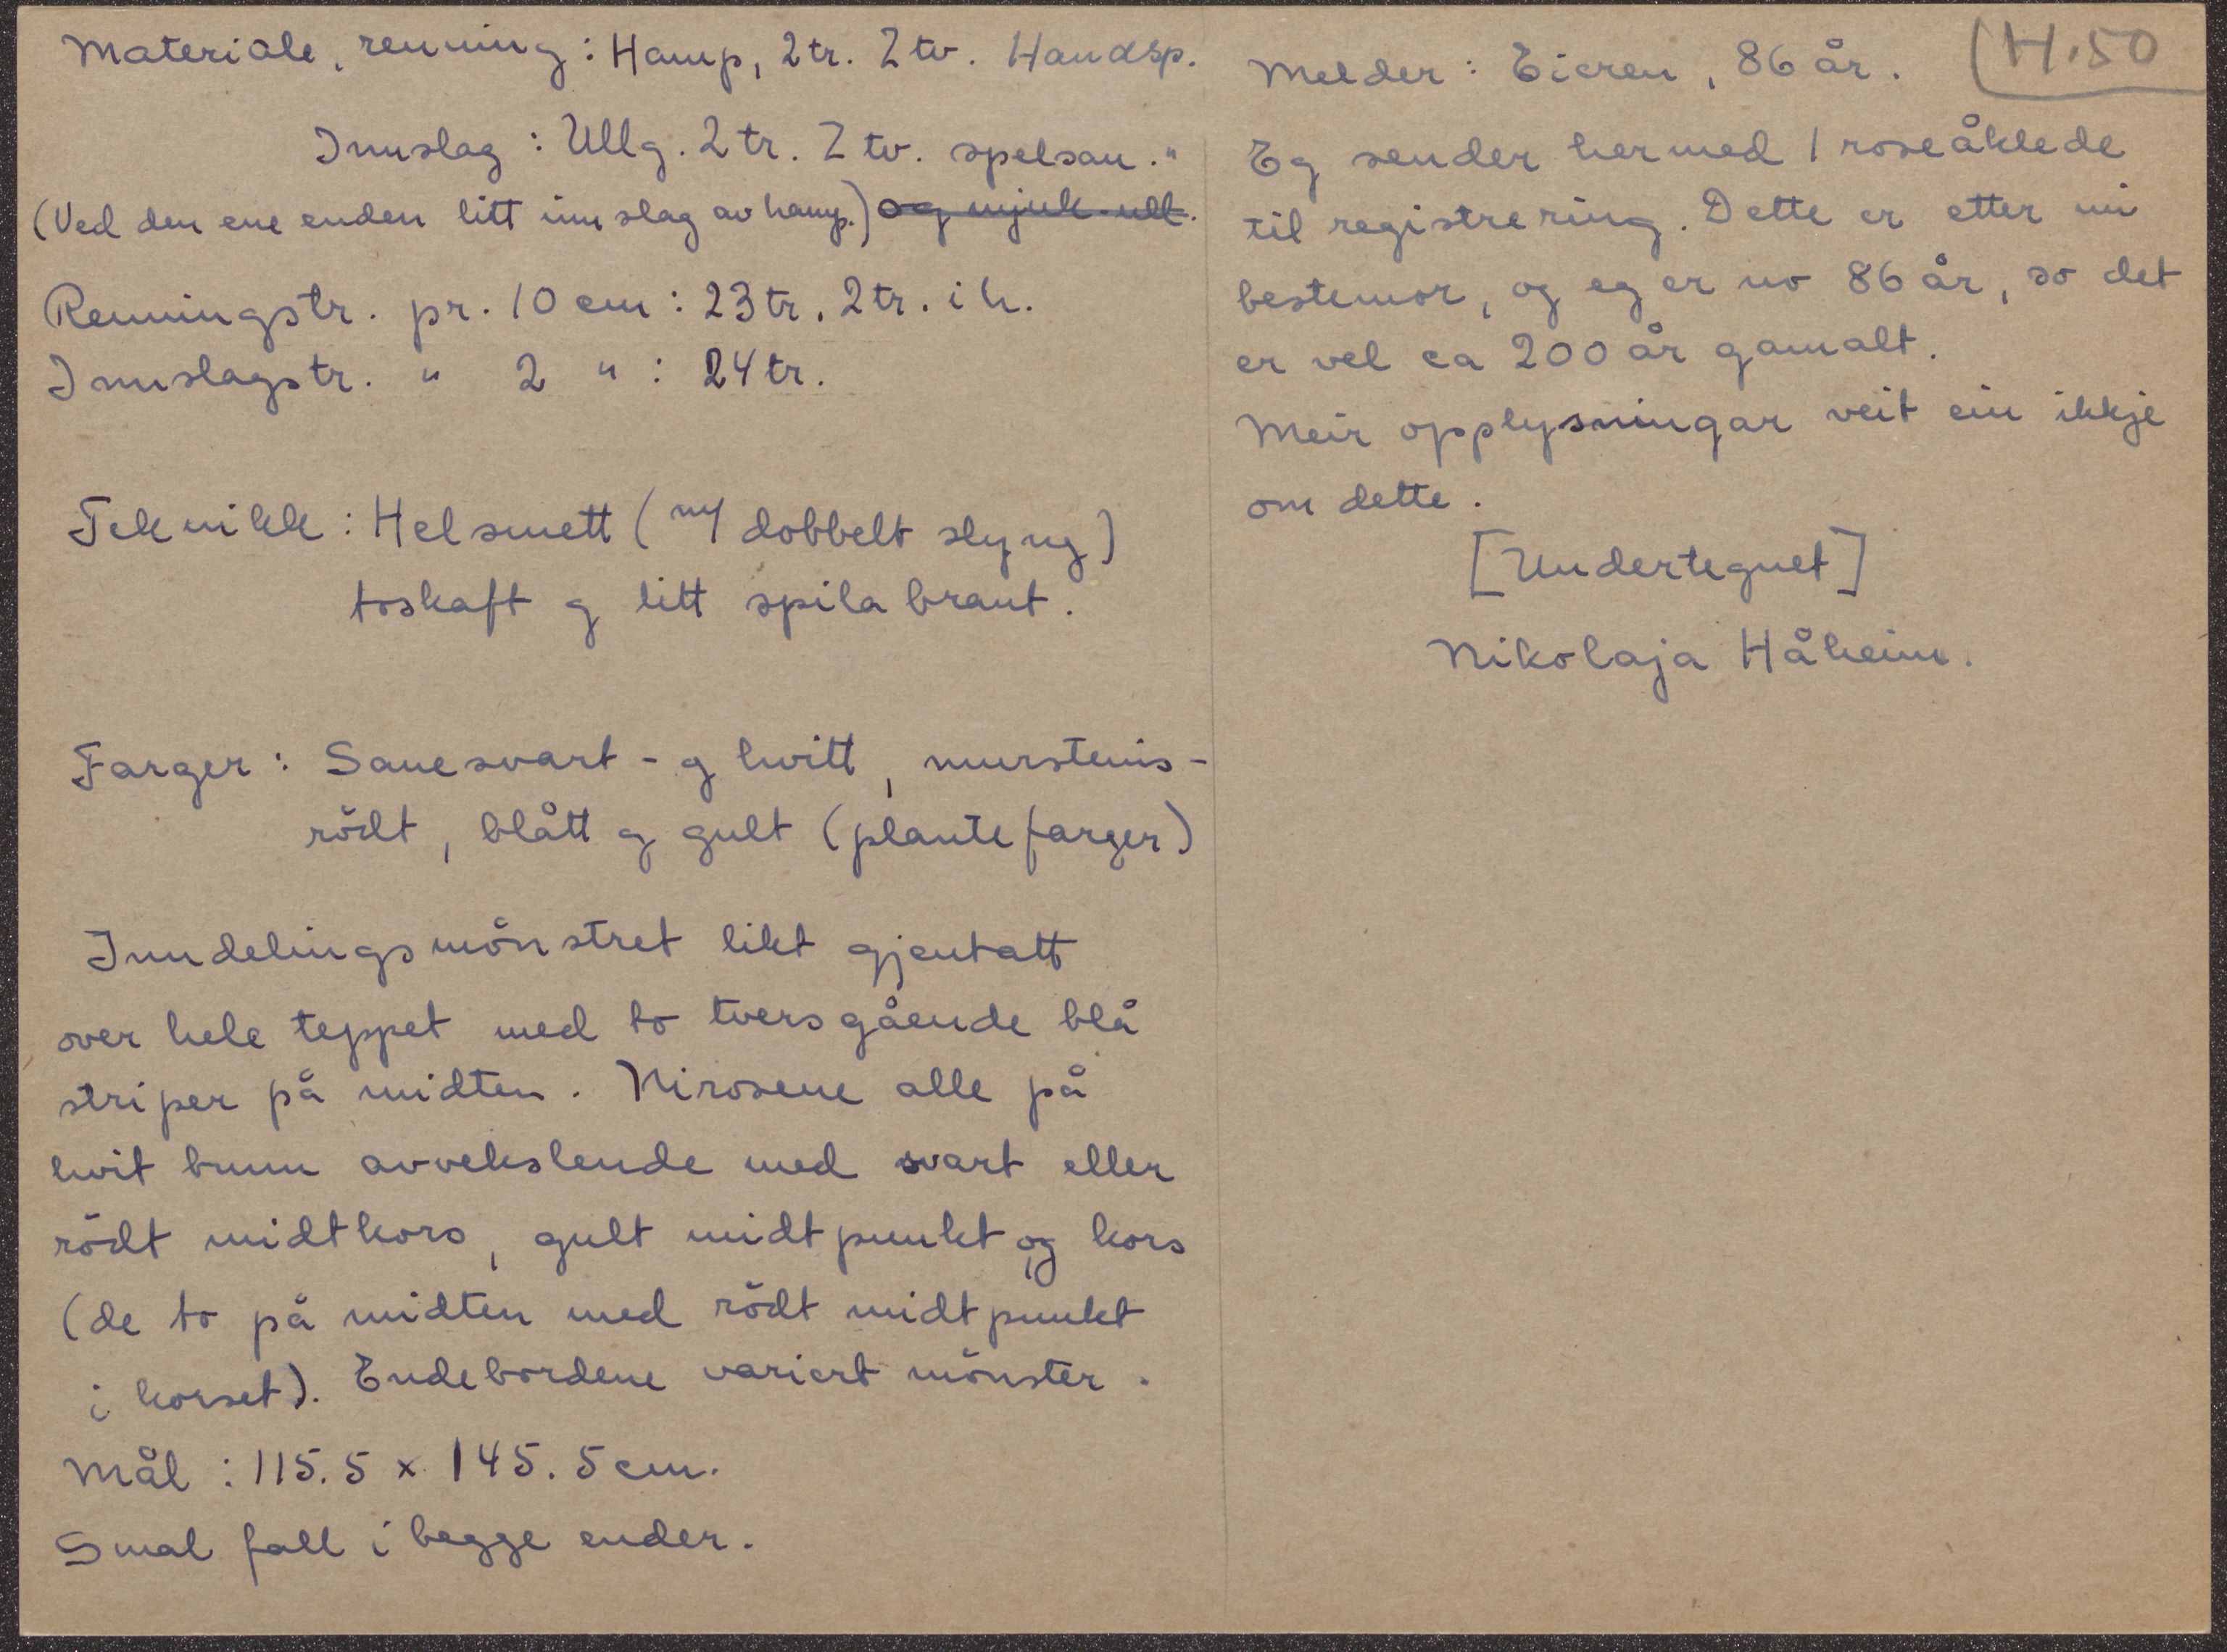 Materiale, renning: Hamp, 2 tr. Z tv. Handsp.
Innslag: Ullg. 2 tr. Z tv. spelsau. "
(Ved den ene enden litt innslag av hamp.) og mjuk ull.
Renningstr. pr. 10 cm: 23 tr. 2 tr. i h.
Innslagstr. " 2 " : 24 tr.
Teknikk: Helsmett (m/ dobbelt slyng)
toskaft og litt spilabrant.
Farger: Sauesvart- og hvitt, murstens-
rödt, blått og gult (plantefarger)
Inndelingsmönstret likt gjentatt
over hele teppet med to tversgående blå
striper på midten. Nirosene alle på
hvit bunn avvekslende med svart eller
rödt midtkors, gult midtpunkt og kors
(de to på midten med rödt midtpunkt
i korset). Endebordene variert mönster.
Mål: 115.5 x 145.5 cm.
Smal fall i begge ender.
H.50
Melder: Eieren, 86 år.
Eg sender hermed 1 roseåklede
til registrering. Dette er etter mi
bestemor, og eg er no 86 år, so det
er vel ca 200 år gamalt.
Meir opplysningar veit ein ikkje
om dette.
[Undertegnet]
Nikolaja Håheim.